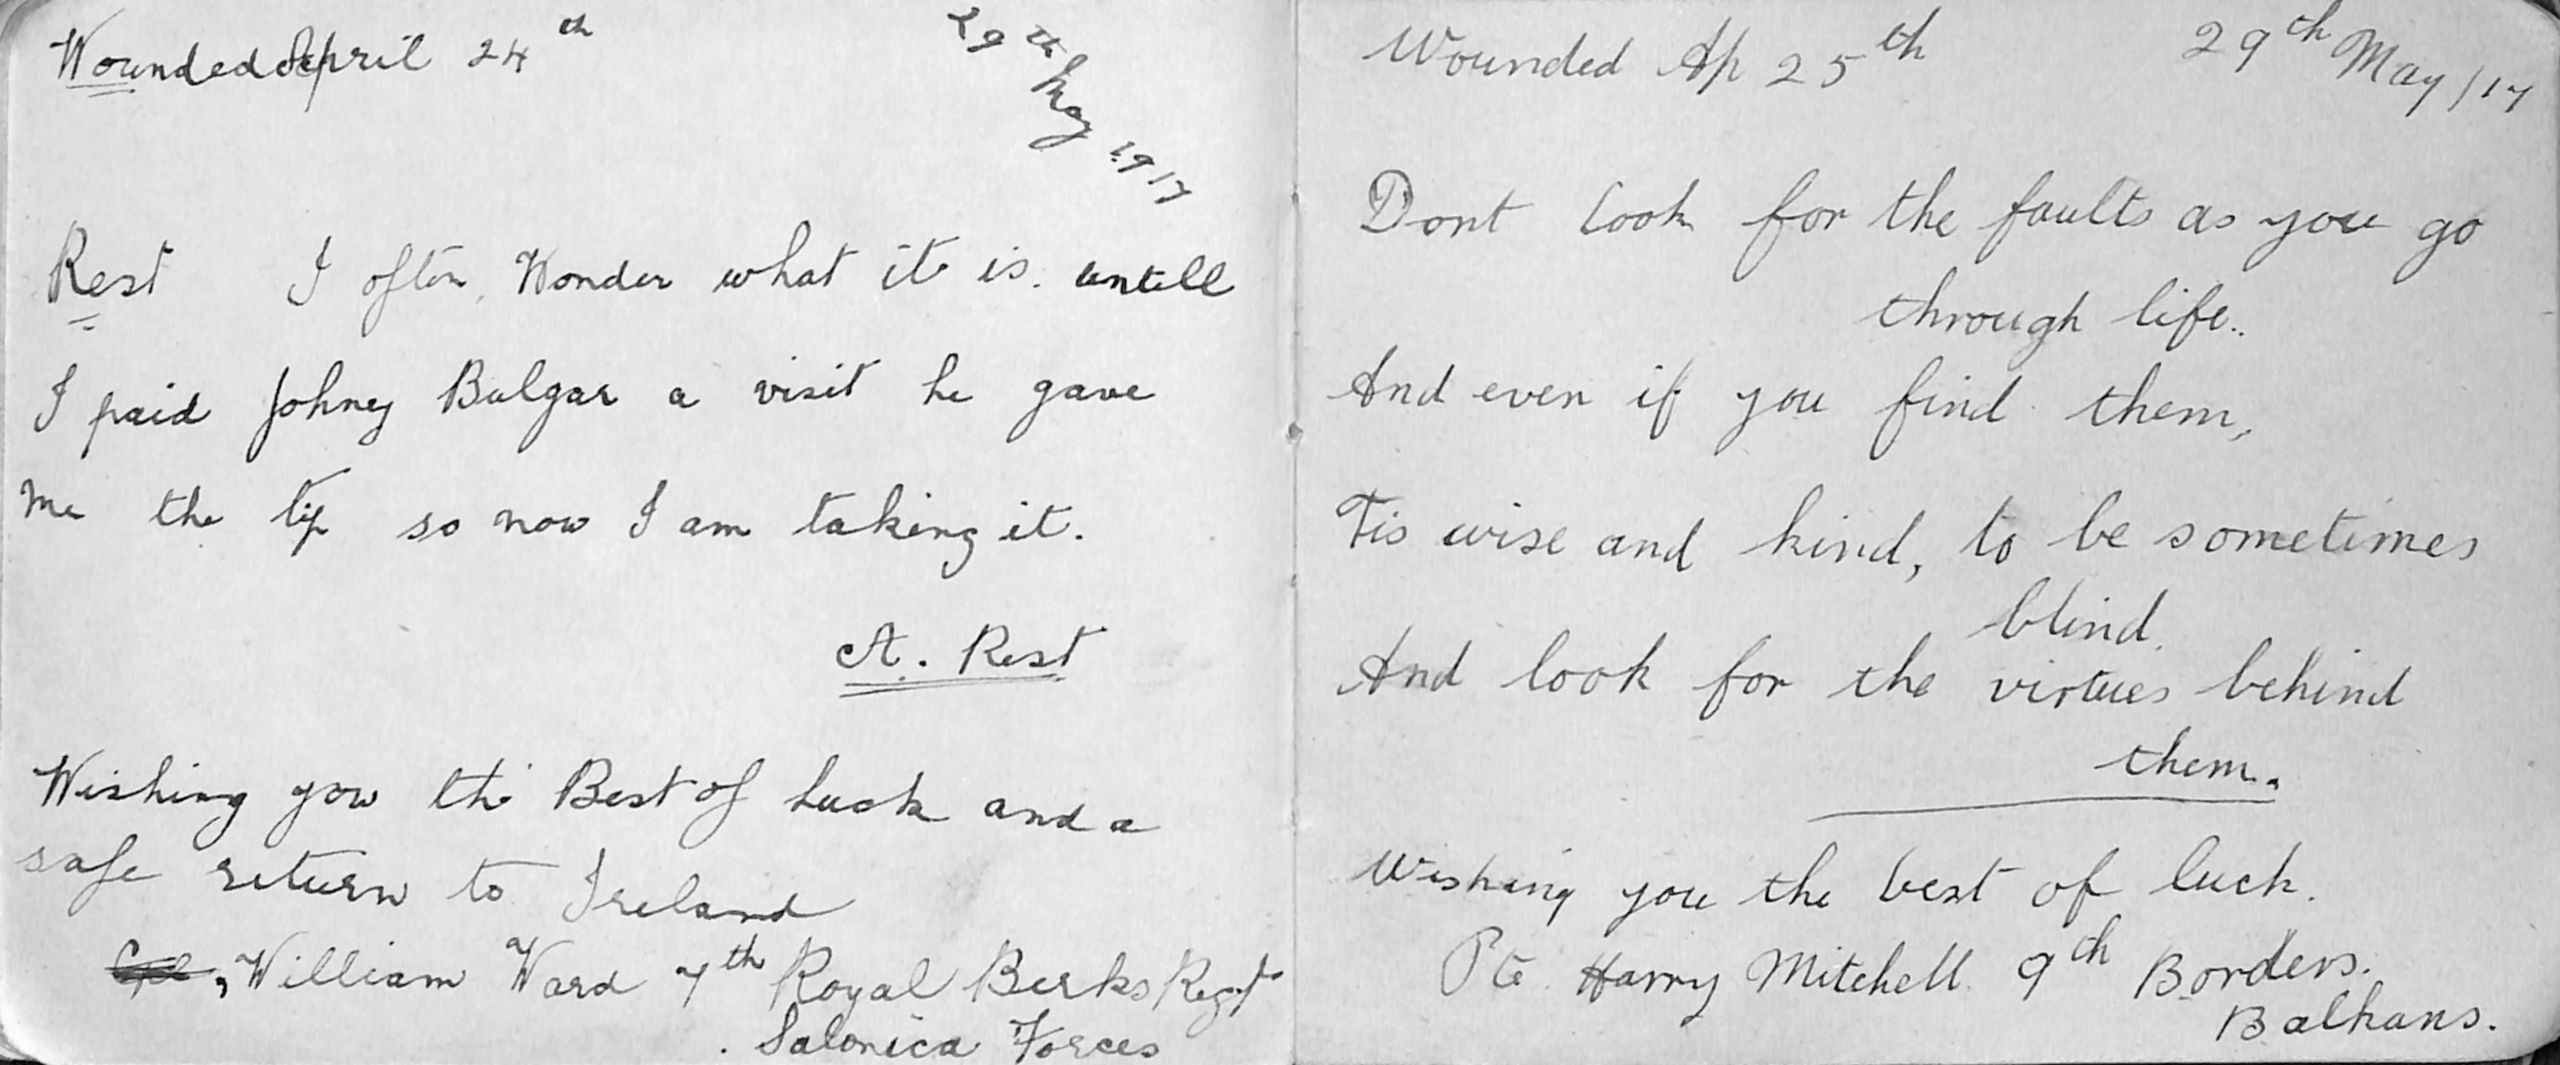 Wounded April 24th
29th May 1917
Rest I often Wonder what it is. untill
I paid Johney Bulgar a visit he gave
me the tip so now I am taking it.
A. Rest
Wishing you the Best of Luck and a
safe return to Ireland
William Ward 7th Royal Berks Regt
Salonica Forces
Wounded Ap 25th 29th May /17
Dont look for the faults as you go
through life..
And even if you find them,
Tis wise and kind, to be sometimes
blind.
And look for the virtues behind
them.
Wishing you the best of luck.
Pte Harry Mitchell 9th Borders.
Balkans.